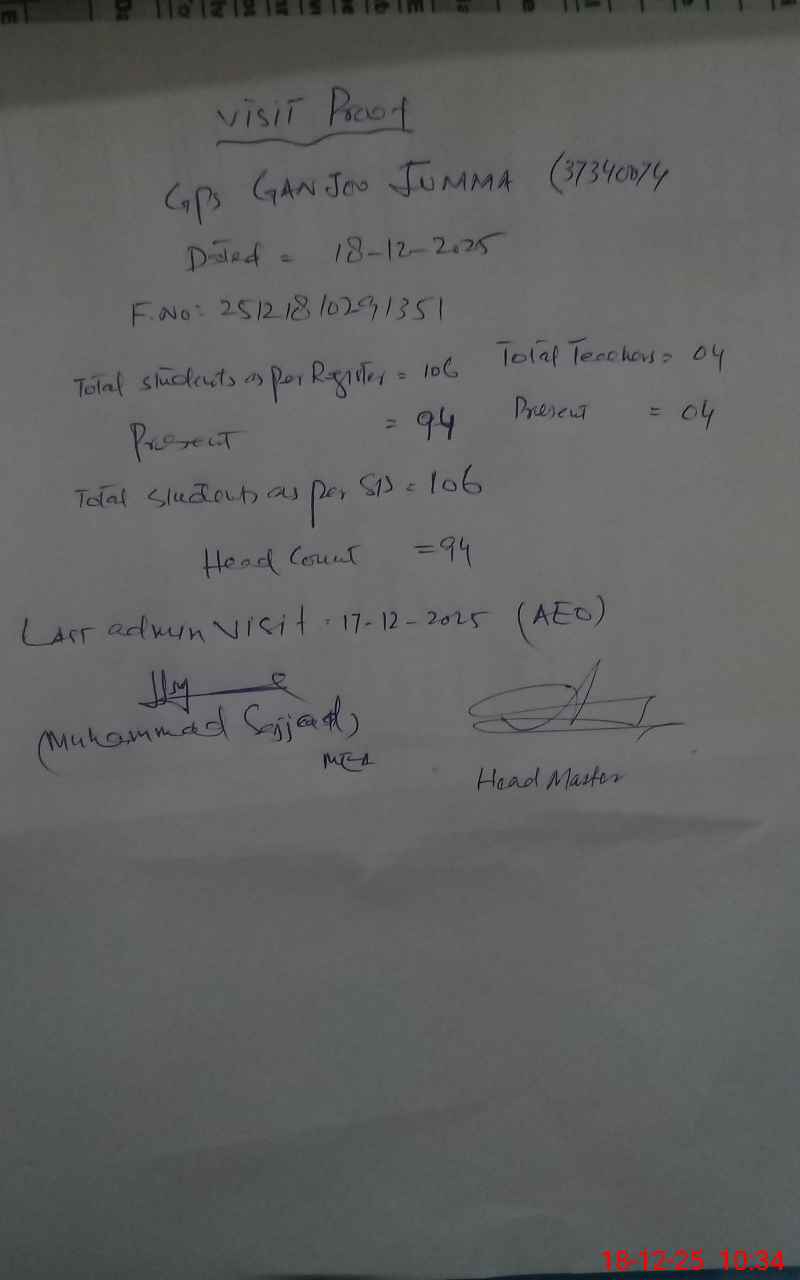 Visit Proof
GPS GANJOO JUMMA (37340074
Dated = 18-12-2025
F.No: 2512181029 1351
Total students as per Register = 106 Total Teachers = 04
Present = 94 Present = 04
Total students as per SIS = 106
Head Count = 94
Last admin visit : 17-12-2025 (AEO)
(Muhammad Sajjad)
MEA
Head Master
18-12-25 10:34